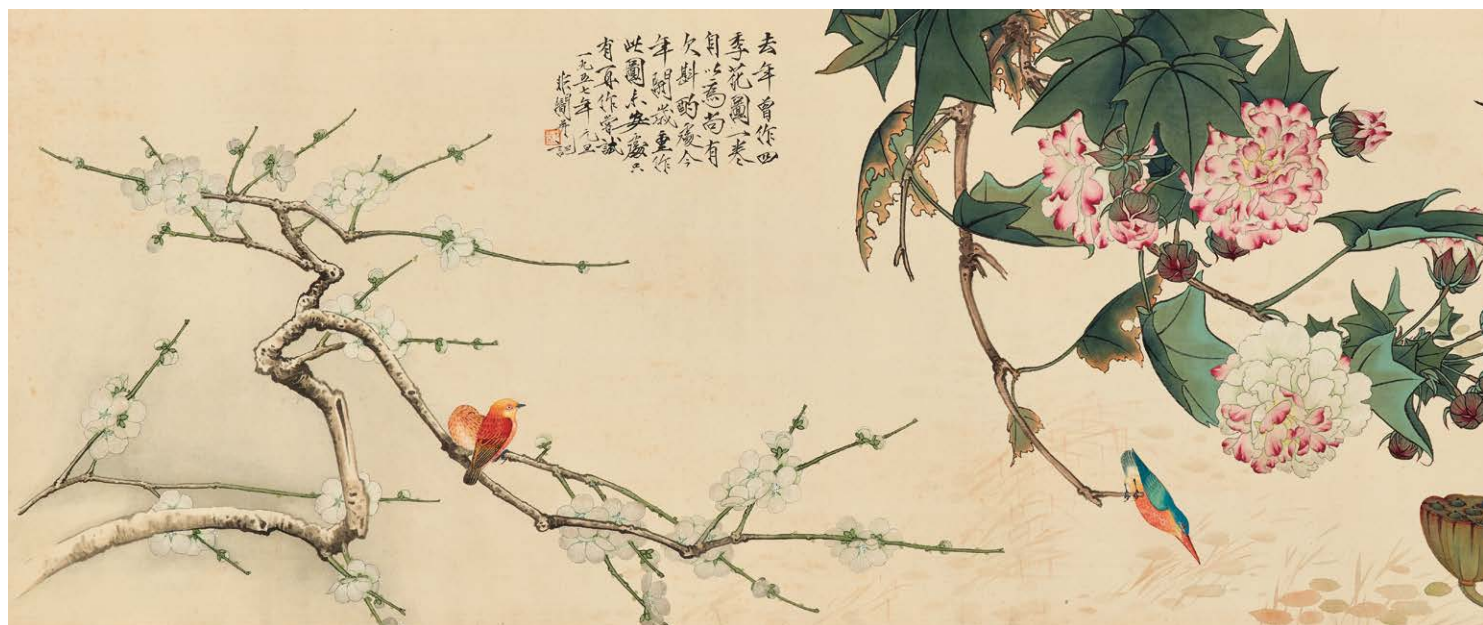 去年曾作四
季花圖一卷
自以爲尚有
欠斟酌處今
年開歲重作
此圖未安處只
有再作嘗試
一九五七年元旦
非闇並記